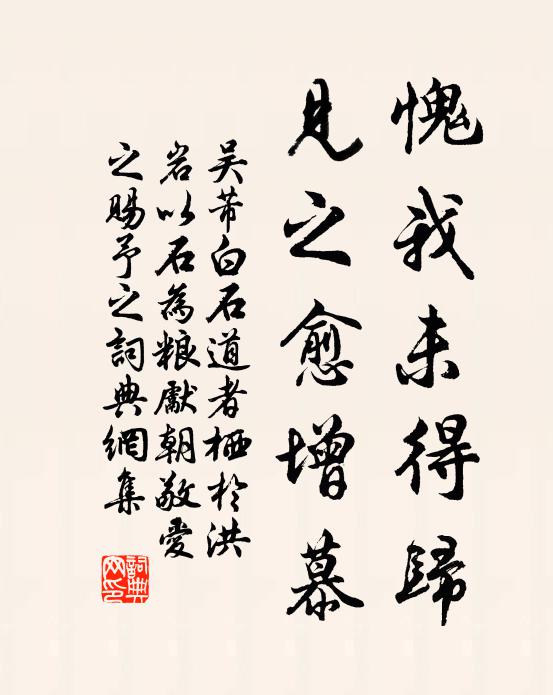 愧我未得歸
見之愈增慕
吴芾白石道者栖於洪
岩以石為粮獻朝敬愛
之賜予之詞典網集
詞典網印